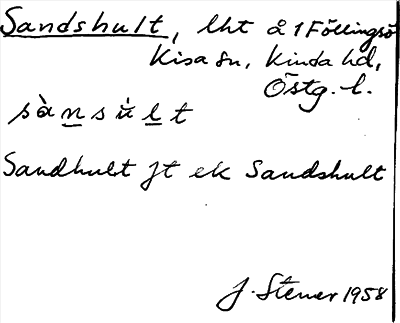 Sandshult, lht å 1 Föllingsö
Kisa sn, Kinda hd,
Östg. l.
sànsúlt
Sandhult jt ek Sandshult
J. Stemer 1958